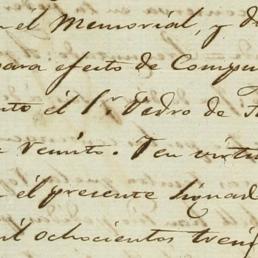 el Memorial, y d
para efecto de Compu
el Sr Pedro de
Veinte. Y en virtu
el presente
mil ochocientos trein